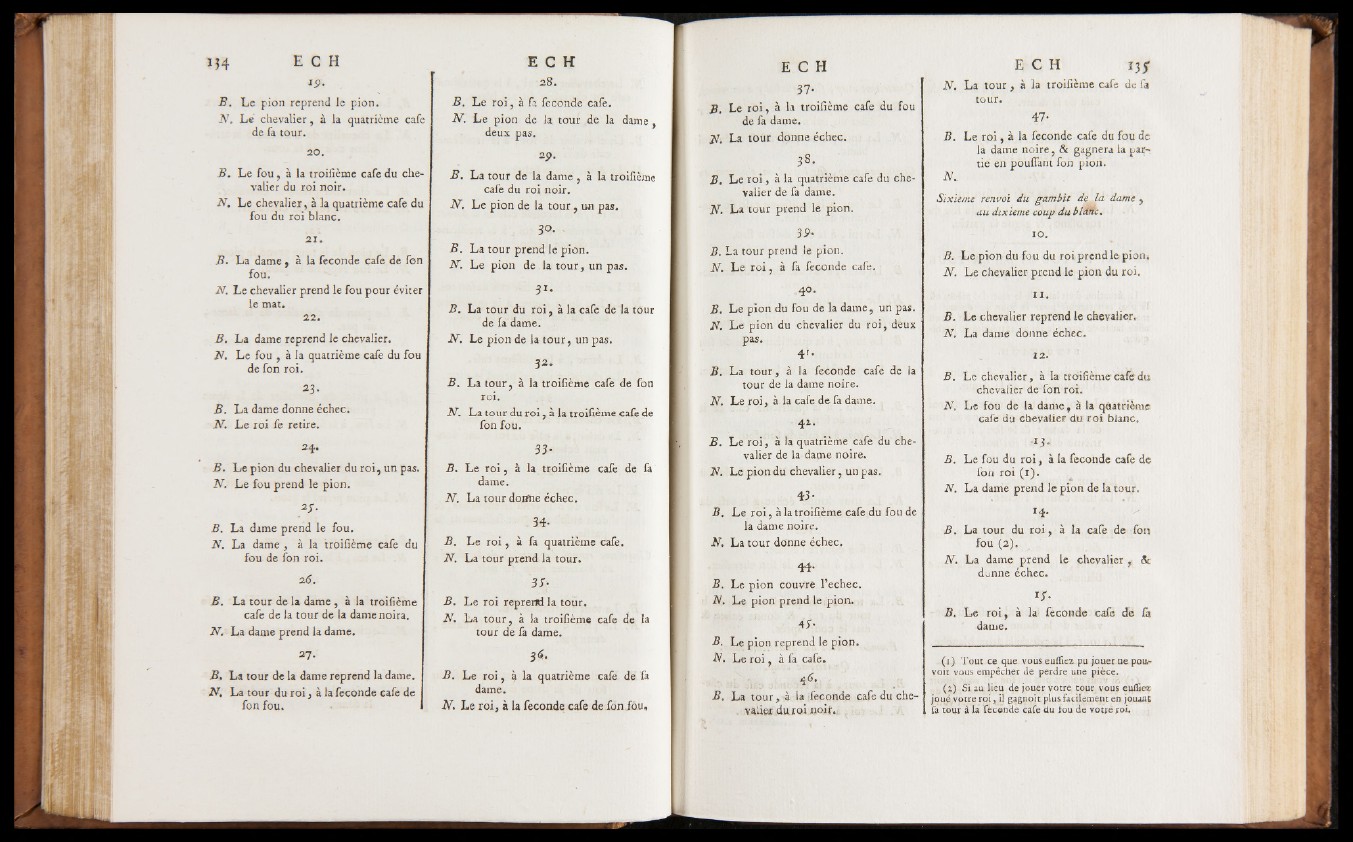 134 E C H
19.
B. Le pion reprend le pion.
N. Le chevalier, à la quatrième caſe
de ſa tour.
20.
B. Le fou, à la troiſième caſe du che-
valier du roi noir.
N. Le chevalier, à la quatrième caſe du
fou du roi blanc.
21.
B. La dame, à la ſeconde caſe de ſon
fou.
N. Le chevalier prend le fou pour éviter
le mat.
22.
B. La dame reprend le chevalier.
N. Le fou, à la quatrième caſe du fou
de ſon roi.
23.
B. La dame donne échec.
N. Le roi ſe retire.
24.
B. Le pion du chevalier du roi, un pas.
N. Le fou prend le pion.
25.
B. La dame prend le fou.
N. La dame, à la troiſième caſe du
fou de ſon roi.
26.
B. La tour de la dame, à la troiſième
caſe de la tour de la dame noira.
N. La dame prend la dame.
27.
B. La tour de la dame reprend la dame.
N. La tour du roi, à la ſeconde caſe de
ſon fou.
E C H
28.
B. Le roi, à ſa ſeconde caſe.
N. Le pion de la tour de la dame,
deux pas.
29.
B. La tour de la dame, à la troiſième
caſe du roi noir.
N. Le pion de la tour, un pas.
30.
B. La tour prend le pion.
N. Le pion de la tour, un pas.
31.
B. La tour du roi, à la caſe de la tour
de ſa dame.
N. Le pion de la tour, un pas.
32.
B. La tour, à la troiſième caſe de ſon
roi.
N. La tour du roi, à la troiſième caſe de
ſon fou.
33.
B. Le roi, à la troiſième caſe de ſa
dame.
N. La tour donne échec.
34.
B. Le roi, à ſa quatrième caſe.
N. La tour prend la tour.
35.
B. Le roi reprend la tour.
N. La tour, à la troiſième caſe de la
tour de ſa dame.
36.
B. Le roi, à la quatrième caſe de ſa
dame.
N. Le roi, à la ſeconde caſe de ſon fou.
E C H
37.
B. Le roi, à la troiſième caſe du fou
de ſa dame.
N. La tour donne échec.
38.
B. Le roi, à la quatrième caſe du che-
valier de ſa dame.
N. La tour prend le pion.
39.
B. La tour prend le pion.
N. Le roi, à ſa ſeconde caſe.
40.
B. Le pion du fou de la dame, un pas.
N. Le pion du chevalier du roi, deux
pas.
41.
B. La tour, à la ſeconde caſe de la
tour de la dame noire.
N. Le roi, à la caſe de ſa dame.
42.
B. Le roi, à la quatrième caſe du che-
valier de la dame noire.
N. Le pion du chevalier, un pas.
43.
B. Le roi, à la troiſième caſe du fou de
la dame noire.
N. La tour donne échec.
44.
B. Le pion couvre l'echec.
N. Le pion prend le pion.
45.
B. Le pion reprend le pion.
N. Le roi, à ſa caſe.
46.
B. La tour, à la ſeconde caſe du che-
valier du roi noir.
E C H 135
N. La tour, à la troiſième caſe de ſa
tour.
47.
B. Le roi, à la ſeconde caſe du fou de
la dame noire, & gagnera la par-
tie en pouſſant ſon pion.
N.
Sixieme renvoi du gambit de la dame,
au dixieme coup du blanc.
10.
B. Le pion du fou du roi prend le pion.
N. Le chevalier prend le pion du roi.
11.
B. Le chevalier reprend le chevalier.
N. La dame donne échec.
12.
B. Le chevalier, à la troiſième caſe du
chevalier de ſon roi.
N. Le fou de la dame, à la quatrième
caſe du chevalier du roi blanc.
13.
B. Le fou du roi, à la ſeconde caſe de
ſon roi (1).
N. La dame prend le pion de la tour.
14.
B. La tour du roi, à la caſe de ſon
fou (2).
N. La dame prend le chevalier, &
donne échec.
15.
B. Le roi, à la ſeconde caſe de ſa
dame.
(1) Tout ce que vous euſſiez pu jouer ne pou-
voit vous empêcher de perdre une pièce.
(2) Si au lieu de jouer votre tour vous euſſiez
joué votre roi, il gagnoit plus facilement en jouant
ſa tour à la ſeconde caſe du fou de votre roi.